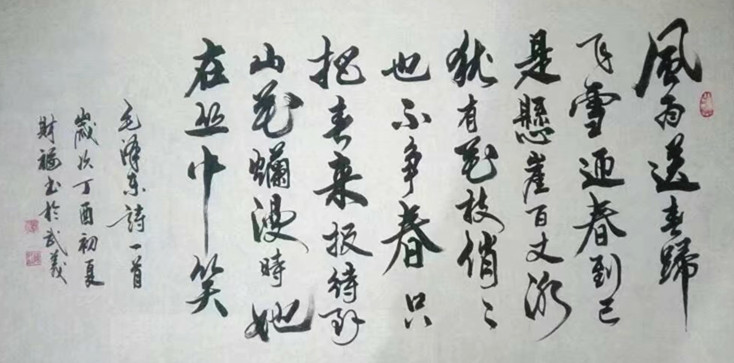 風雨送春歸
飞雪迎春到已
是懸崖百丈冰
犹有花枝俏〻
也不争春只
把春来报待到
山花爛漫時她
在丛中笑
毛泽东詩一首
歲次丁酉初夏
財福书於武義